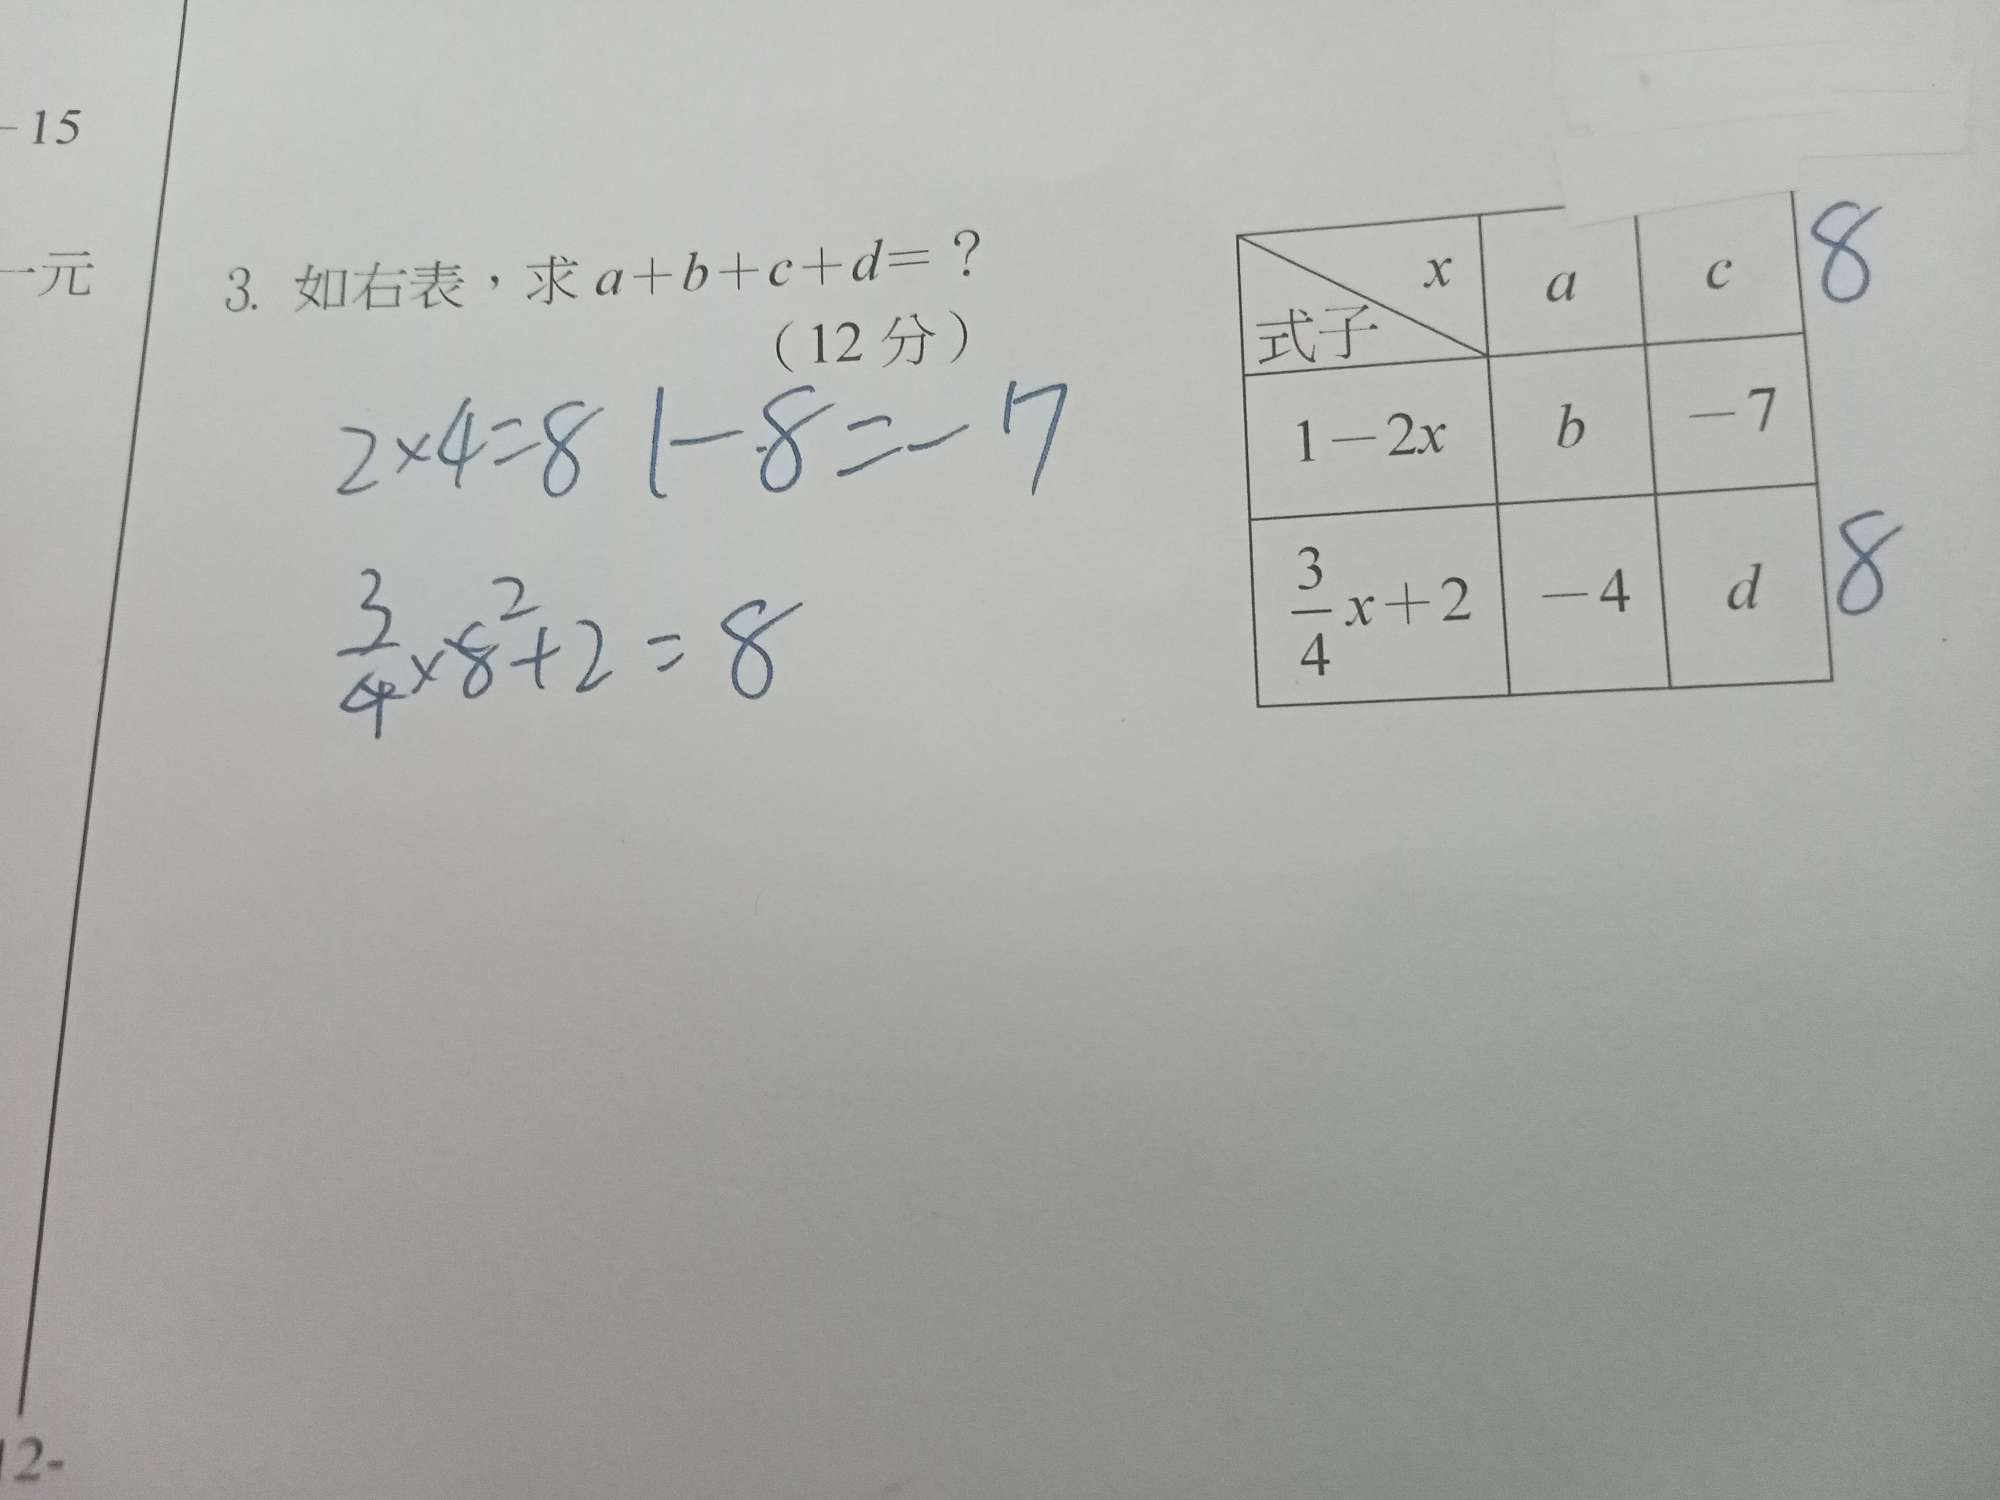 -15
一元
3. 如右表，求a+b+c+d=？
（12 分）
2×4=8 1-8=-7
3/4×8²+2=8
x a c 8
式子
1-2x b -7
3/4x+2 -4 d 8
12-